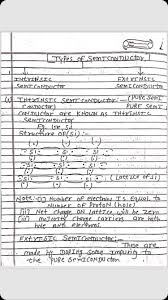 Types of Semiconductor
INTRINSIC EXTRINSIC
SEMICONDUCTOR SEMICONDUCTOR
(1) INTRINSIC SEMICONDUCTOR - (Pure semi
conductor) Pure semi
conductor are known as intrinsic
semiconductor
Ex. Ge, Si
Structure of (Si) :-
Si Si Si Si
Si Si Si (Lattice of Si)
Note: (i) Number of electron is equal to
Number of proton (hole)
(ii) Net charge on lattice will be zero
(iii) charge carriers are both
hole and electrons.
Extrinsic Semiconductor :- These are
made by doping some impurity to
the pure semiconductor